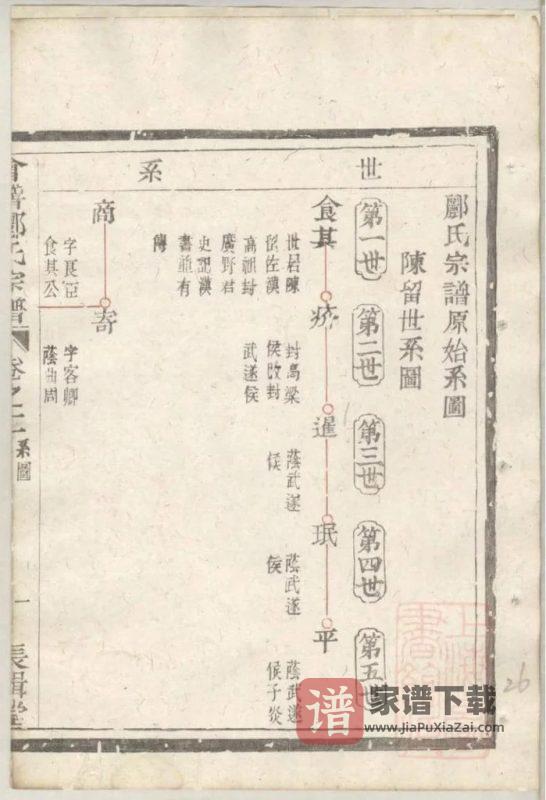 酈氏宗譜原始系圖
陳留世系圖
世系
第一世
第二世
第三世
第四世
第五世
食其
世居陳
留佐漢
高祖封
廣野君
史記漢
書並有
傳
疥
封高梁
侯改封
武遂侯
遈
蔭武遂
侯
珉
蔭武遂
侯
平
蔭武遂
侯子炎
商
字長臣
食其公
寄
字客卿
蔭曲周
會稽酈氏宗譜
卷之二
系圖
一
長緝堂
26
谱
家谱下载
www.JiaPuXiaZai.com